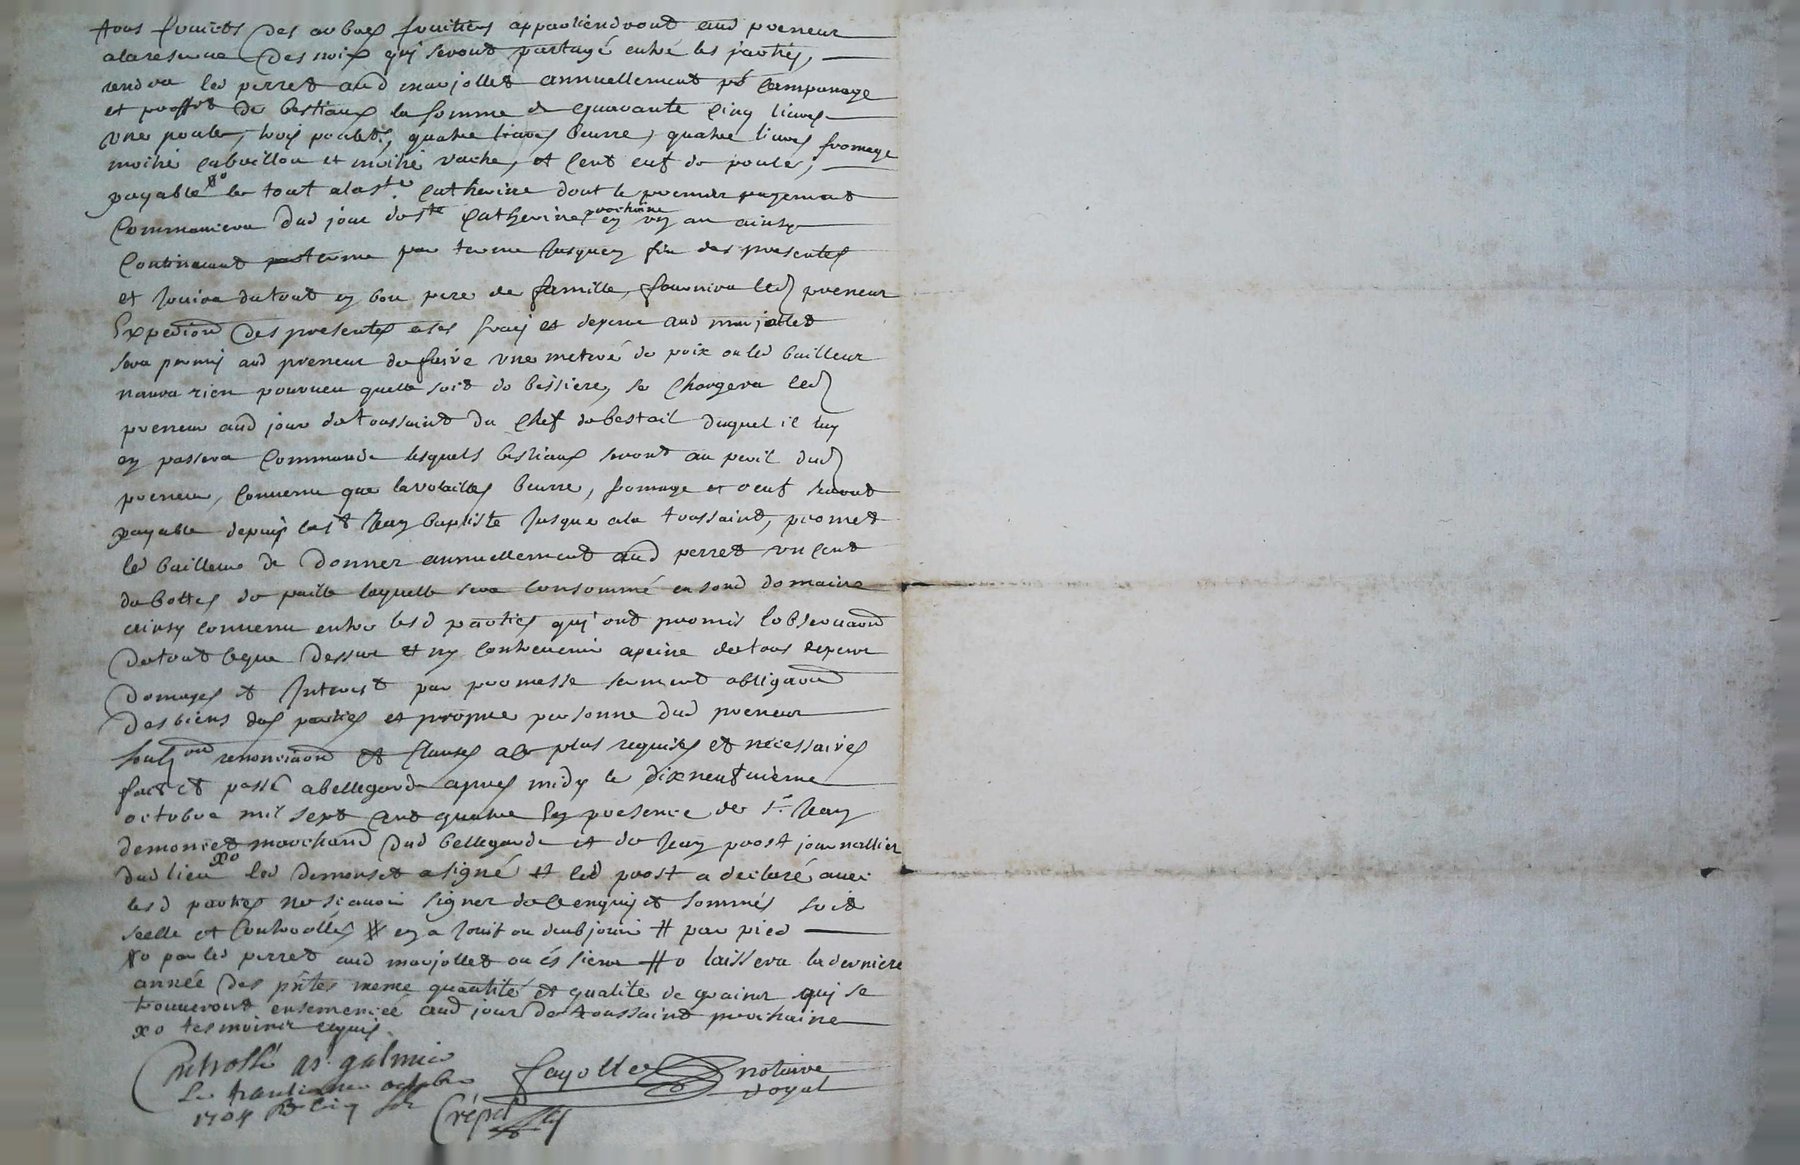 tous fruicts des arbres fruitiers appartiendront aud preneur
alareserue des noix qui seront partagé entre les parties,
rendra led perret aud marjollet annuellement pr Campanage
et proffit de bestiaux la somme de quarante cinq liures
vne poule, trois poulets, quatre liures beurre, quatre liures fromage
moitié cabrillon et moitié vache, et cent œuf de poule,
payable xo le tout alaste Catherine dont le premier payement
Commancera dud jour de ste Catherine prochaine en vn an ainsy
Continuant terme par terme Jusques fin des presentes
et Jouira dutout en bon pere de famille, fournira led preneur
Expedion des presentes a ses frais et depens aud marjollet
sera permis aud preneur de faire vne meteré de poix ou led bailleur
naura rien pourueu quelle soit de bessiere, se Chargera led
preneur aud jour de toussaint du Chef de bestail duquel il luy
en passera Commande lesquels bestiaux seront au peril dud
preneur, Conuenu que la volailles beurre, fromage et oeuf seront
payable depuis la st Jean baptiste Jusque ala toussaint, promet
led bailleur de donner annuellement aud perret vn cent
de bottes de paille laquelle sera consommé en sond domaine
ainsy conuenu entre lesd parties qui ont promis lobseruaon
de tout ceque dessus et ny contreuenir apeine de tous depens
domages et Interest par promesse serment obligaon
des biens des parties et propre personne dud preneur
soubzon renonciaon et Clauses ale plus requises et necessaires
fait et passé abellegarde apres midy le dixneufuieme
octobre mil sept cent quatre En presence de sr Jean
demoncet marchand dud bellegarde et de Jean prost journallier
dud lieu xo led demonset a signé et led prost a declaré auec
lesd parties ne scauoir signer de ce enquis et sommés soit
scelle et Controollés # en a Jouit ou deub jouir # par pied
xo par led perret aud marjollet ou és siens #o laissera la derniere
année des pntes meme quantité et qualité de grains qui se
trouueront ensemencée aud jour de toussaint prochaine
xo tesmoins requis
Controllé a st galmier fayolle notaire
Le trantieme octobre royal
1704